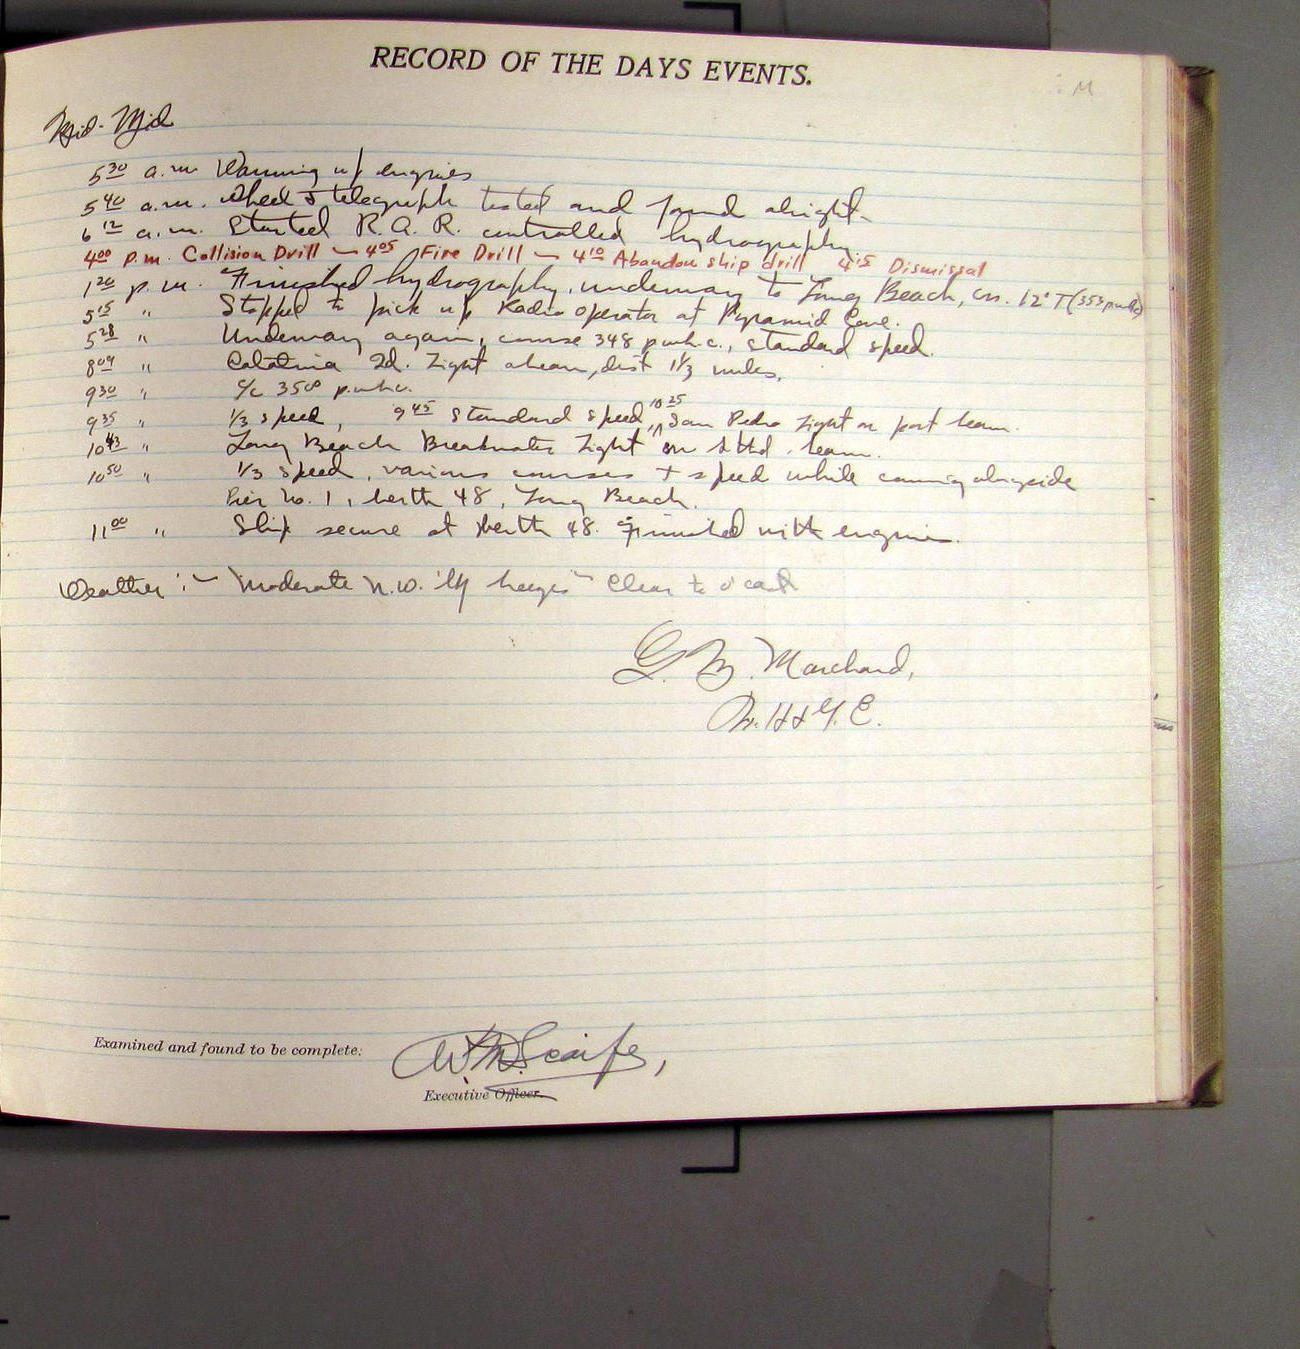 RECORD OF THE DAYS EVENTS.
Mid - Mid
5 30 a.m. Warming up engines
5 40 a.m. Wheel & telegraph tested and found alright.
6 12 a.m. Started R.A.R. controlled hydrography.
4 00 p.m. Collision Drill — 4 05 Fire Drill — 4 10 Abandon ship drill 4 15 Dismissal
1 20 p.m. Finished hydrography, underway to Long Beach, crs. 12° T (353 p.w.h.c)
5 15 " Stopped to pick up Radio operator at Pyramid Cove.
5 28 " Underway again, course 348 p.w.h.c., standard speed.
8 09 " Catalina Id. Light abeam, dist 1 1/3 miles.
9 30 " c/c 350° p.w.h.c.
9 35 " 1/3 speed, 9 45 standard speed, 10 25 San Pedro Light on port beam.
10 43 " Long Beach Breakwater Light on stbd. beam.
10 50 " 1/3 speed, various courses + speed while coming alongside
Pier No. 1, berth 48, Long Beach.
11 00 " Ship secure at berth 48. Finished with engines.
Weather :- Moderate N.W.'ly breeze - Clear to o'cast
G. M. Marchand,
Jr. H & G. E.
Examined and found to be complete:
W.M. Scaife,
Executive Officer.